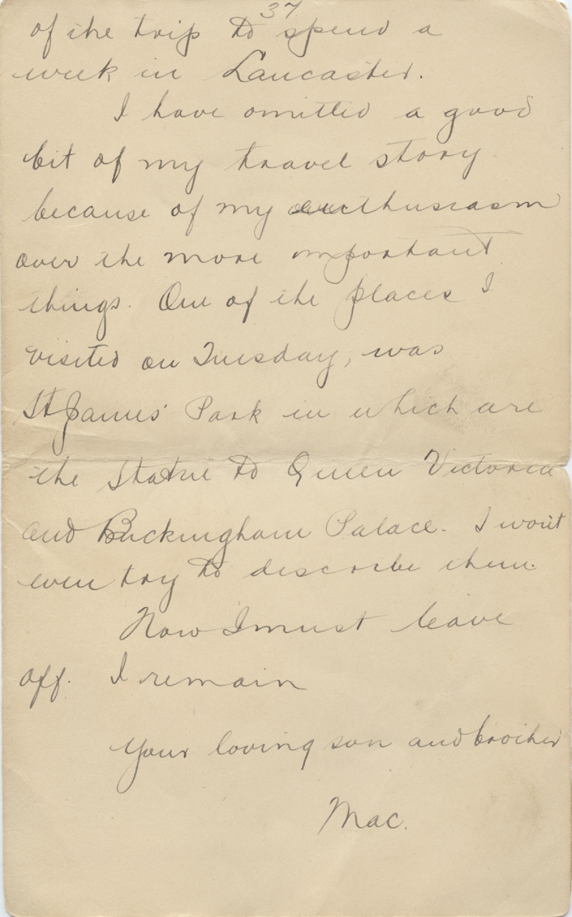 37
of the trip to spend a
week in Lancaster.
I have omitted a good
bit of my travel story
because of my enthusiasm
over the more important
things. One of the places I
visited on Tuesday, was
St James' Park in which are
the Statue to Queen Victoria
and Buckingham Palace. I won't
even try to describe them.
Now I must leave
off. I remain
Your loving son and brother
Mac.